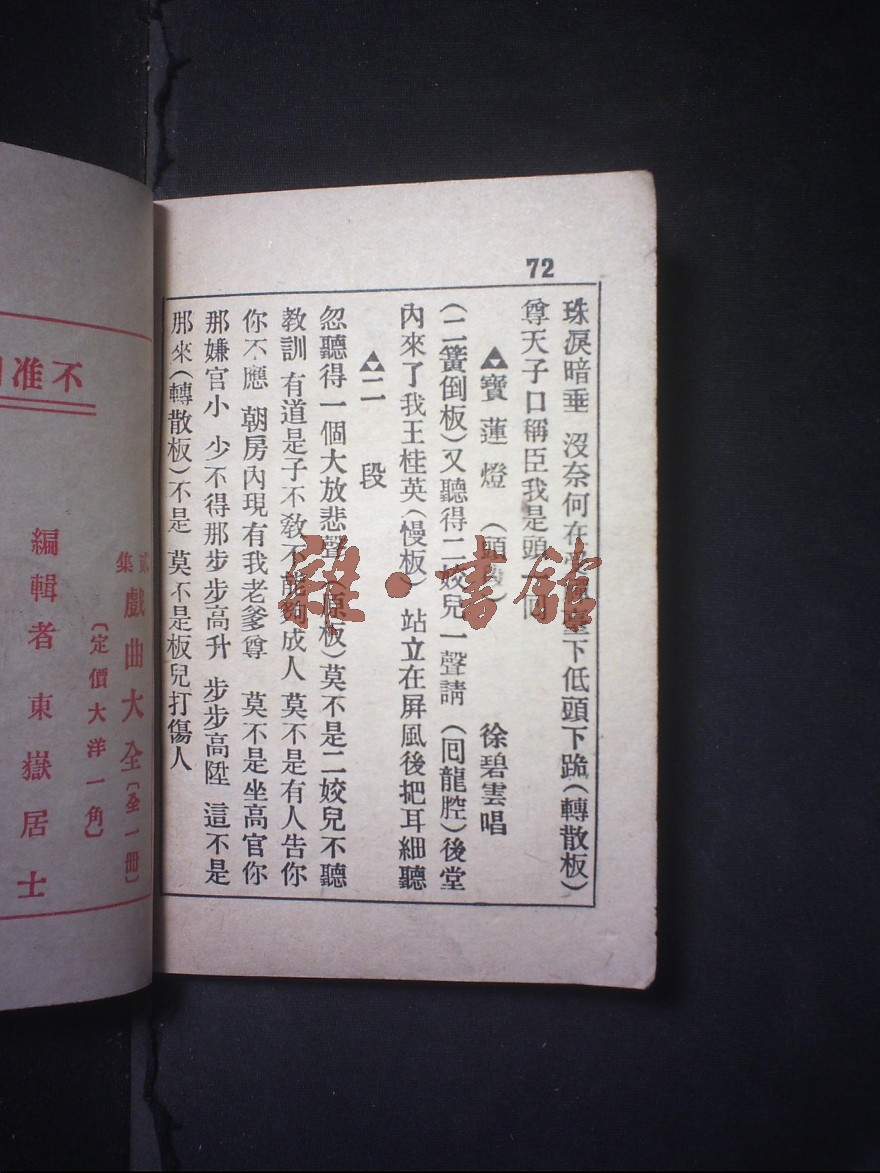 72
珠淚暗垂 沒奈何在臺下低頭下跪(轉散板)
尊天子口稱臣我是頭一囘
寶蓮燈 (頭段) 徐碧雲唱
(二簧倒板)又聽得二姣兒一聲請 (囘龍腔)後堂
內來了我王桂英(慢板) 站立在屏風後把耳細聽
二 段
忽聽得一個大放悲聲 (原板)莫不是二姣兒不聽
教訓 有道是子不敎不能夠成人 莫不是有人告你
你不應 朝房內現有我老爹尊 莫不是坐高官你
那嫌官小 少不得那步步高升 步步高陞 這不是
那來(轉散板)不是 莫不是板兒打傷人
不准
貳集 戲曲大全 〔全一冊〕
〔定價大洋一角〕
編輯者 東嶽居士
雜·書館